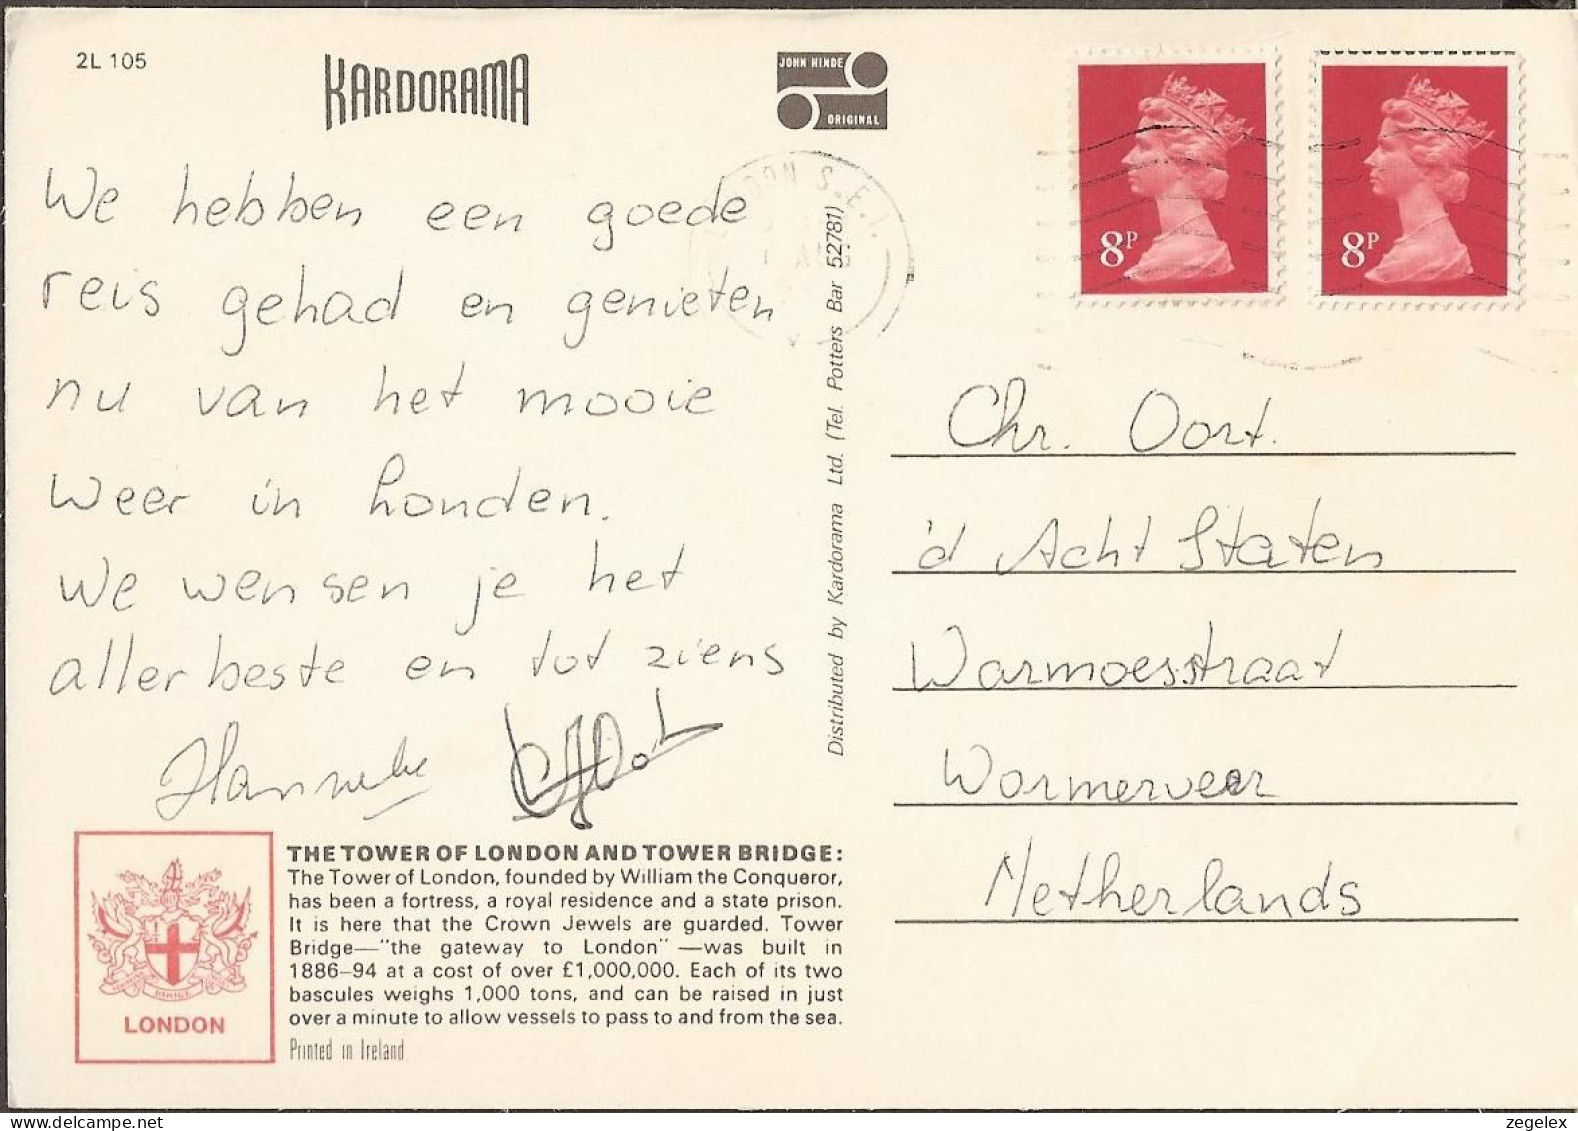 2L 105
KARDORAMA
JOHN HINDE
ORIGINAL
We hebben een goede
reis gehad en genieten
nu van het mooie
weer in Londen.
We wensen je het
allerbeste en tot ziens
Hanneke
LONDON S.E.1.
8P
8P
Chr. Oort.
'd Acht Staten
Warmoesstraat
Wormerveer
Netherlands
Distributed by Kardorama Ltd. (Tel. Potters Bar 52781)
LONDON
THE TOWER OF LONDON AND TOWER BRIDGE:
The Tower of London, founded by William the Conqueror,
has been a fortress, a royal residence and a state prison.
It is here that the Crown Jewels are guarded. Tower
Bridge—"the gateway to London"—was built in
1886–94 at a cost of over £1,000,000. Each of its two
bascules weighs 1,000 tons, and can be raised in just
over a minute to allow vessels to pass to and from the sea.
Printed in Ireland
zegelex